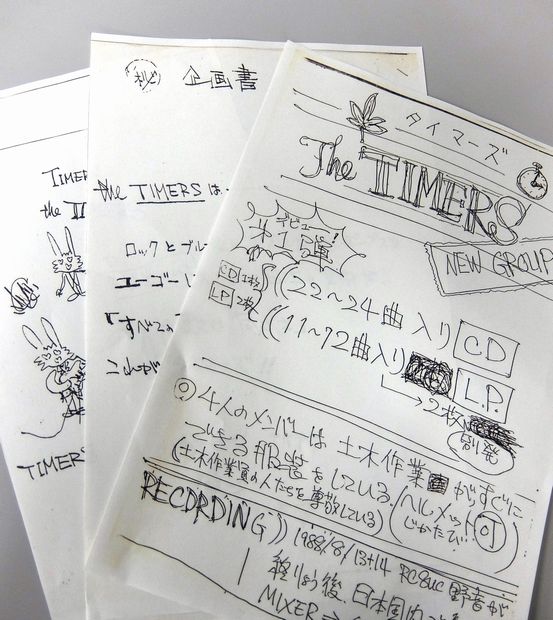 タイマーズ
The TIMERS
NEW GROUP
デビュー
第1弾
CD1枚
LP2枚
((22〜24曲入り CD
((11〜12曲入り LP.
2枚
別発
◎4人のメンバーは土木作業がすぐに
できる服装をしている。(ヘルメット
じかたび
(土木作業員の人たちを尊敬している)
RECORDING)) 1988/8/13+14 RCSUC 野音が
終りょう後、日本国内
MIXER
㊙ 企画書
the TIMERS は
ロックとブル
ユーゴー
「すべての
これが
TIMER
the
TIMERS